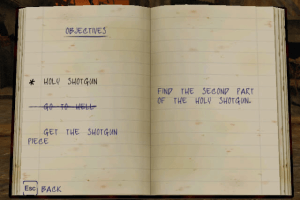 OBJECTIVES
* HOLY SHOTGUN
GO TO WELL
GET THE SHOTGUN
PIECE
FIND THE SECOND PART
OF THE HOLY SHOTGUN.
Esc BACK